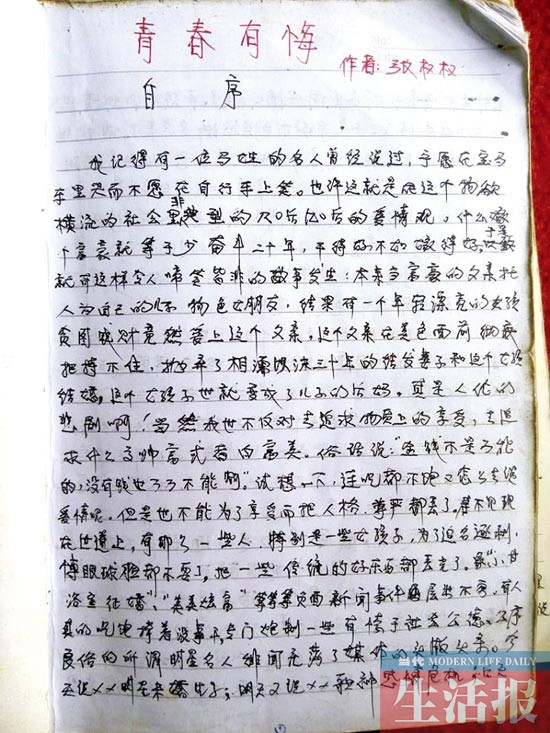 青春有悔
作者:张权权
自序
我记得有一位马姓的名人曾经说过,宁愿在宝马
车里哭而不愿在自行车上笑。也许这就是在这个物欲
横流的社会里非典型的70后80后的爱情观,什么嫁
个富豪就等于少奋斗二十年,干得好不如嫁得好等等
就有这样令人啼笑皆非的故事发生:本来富豪的父亲托
人为自己的儿子物色女朋友,结果有一个年轻漂亮的女孩
贪图钱财竟然爱上这个父亲,这个父亲在美色面前
把持不住,抛弃了相濡以沫三十年的结发妻子和这个女孩
结婚,这个女孩子也就变成了儿子的后妈。真是人伦的
悲剧啊!当然我也不反对去追求物质上的享受,去追
求什么高帅富或者白富美。俗话说:“金钱不是万能
的,没有钱也万万不能啊”。试想一下,连吃都不饱又怎么去谈
爱情呢。但是也不能为了享受而把人格,尊严都丢了。
在世道上,有那么一些人,特别是一些女孩子,为了追名逐利,
博眼球脸都不要了,把一些传统的好东西都丢光了。
浴室征婚”、 炫富”等等负面新闻事件层出不穷,有人
真的吃饱撑着没事干,专门炮制一些有悖于社会公德、公序
良俗的所谓明星名人绯闻充满了媒体的头版头条。今
天说××明星未婚生子;明天又说××
当代 MODERN LIFE DAILY
生活报